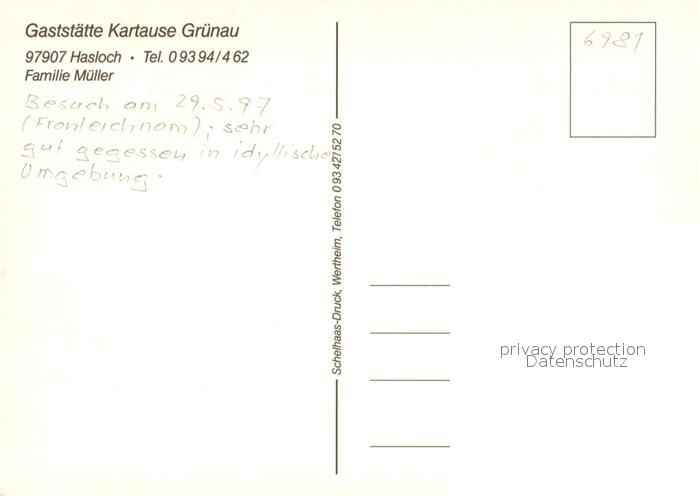 Gaststätte Kartause Grünau
97907 Hasloch · Tel. 0 93 94 / 4 62
Familie Müller
Besuch am 29.5.97
(Fronleichnam); sehr
gut gegessen in idyllischer
Umgebung.
Schelhaas-Druck, Wertheim, Telefon 0 93 42 / 52 70
6981
privacy protection
Datenschutz